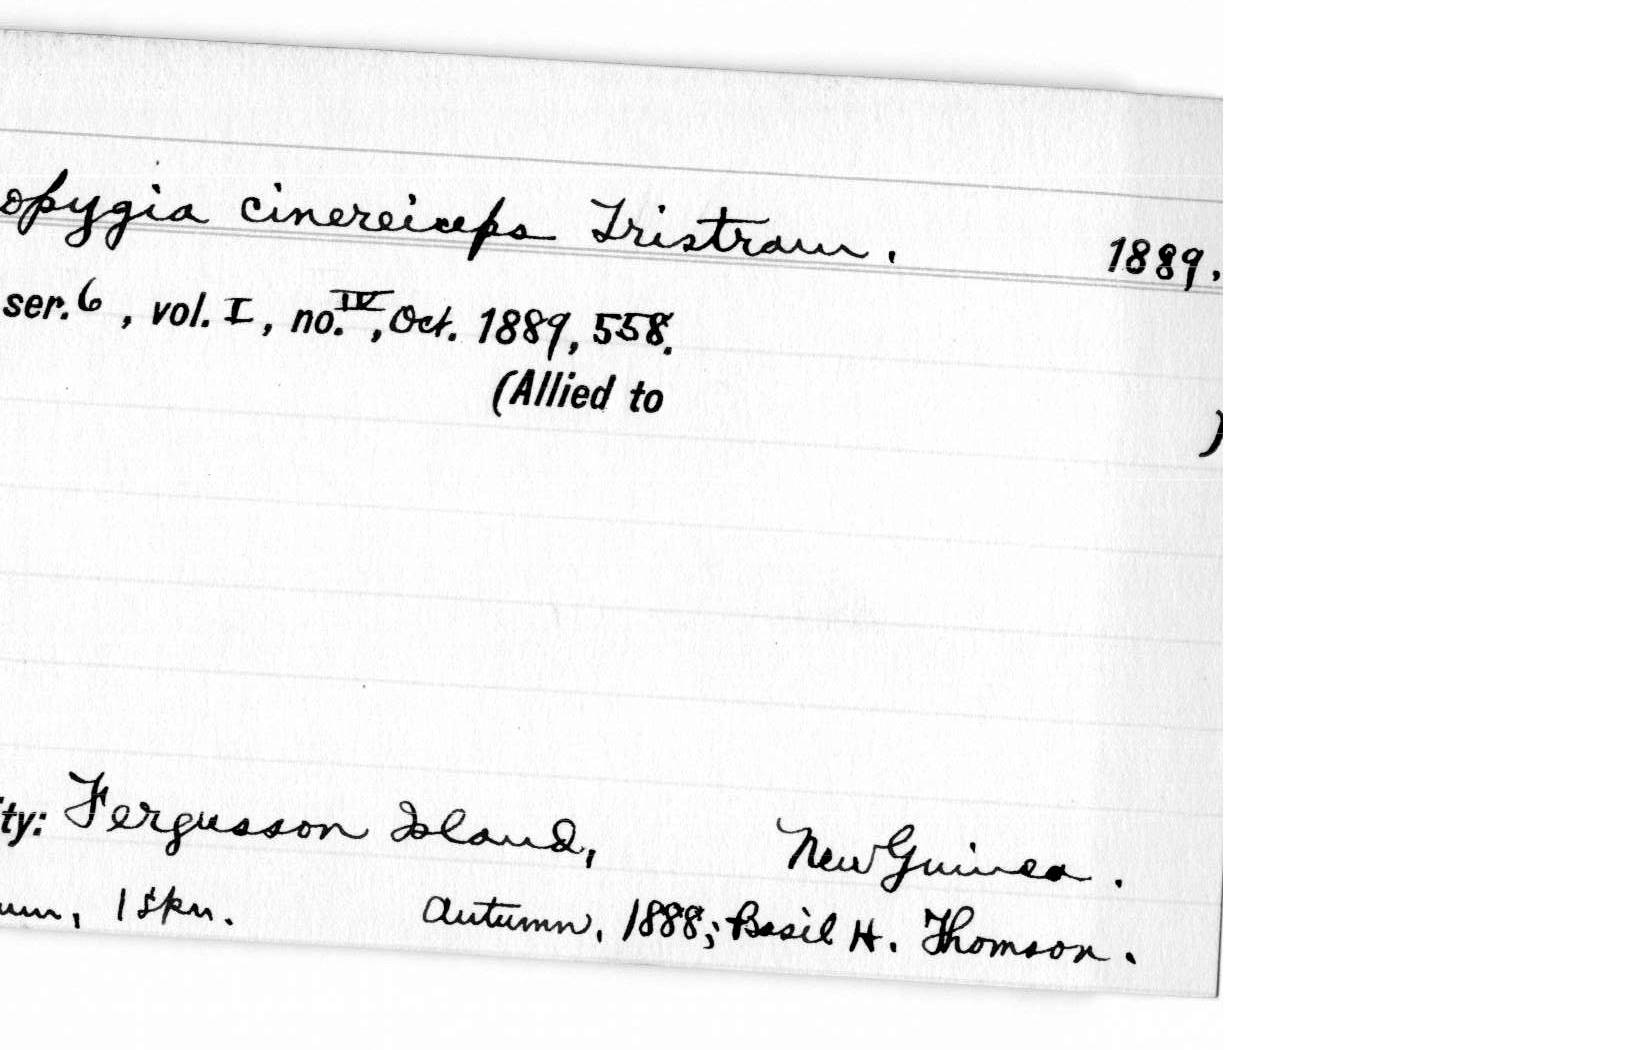 opygia cinereiceps Tristram. 1889.
ser. 6, vol. I, no. IV, Oct. 1889, 558.
(Allied to )
ty: Fergusson Island, New Guinea.
um, 1 spn. Autumn, 1888; Basil H. Thomson.